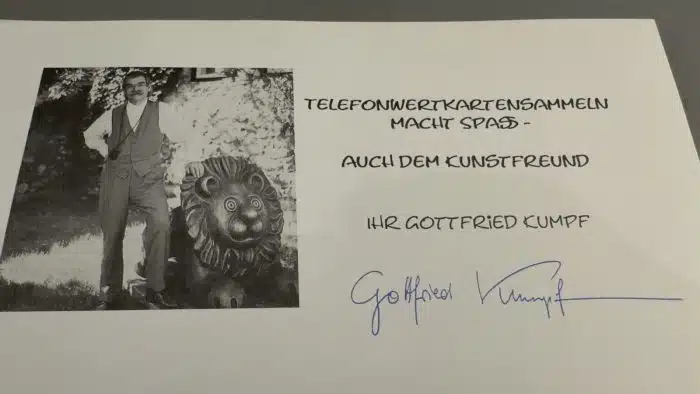 TELEFONWERTKARTENSAMMELN
MACHT SPASS -
AUCH DEM KUNSTFREUND
IHR GOTTFRIED KUMPF
Gottfried Kumpf